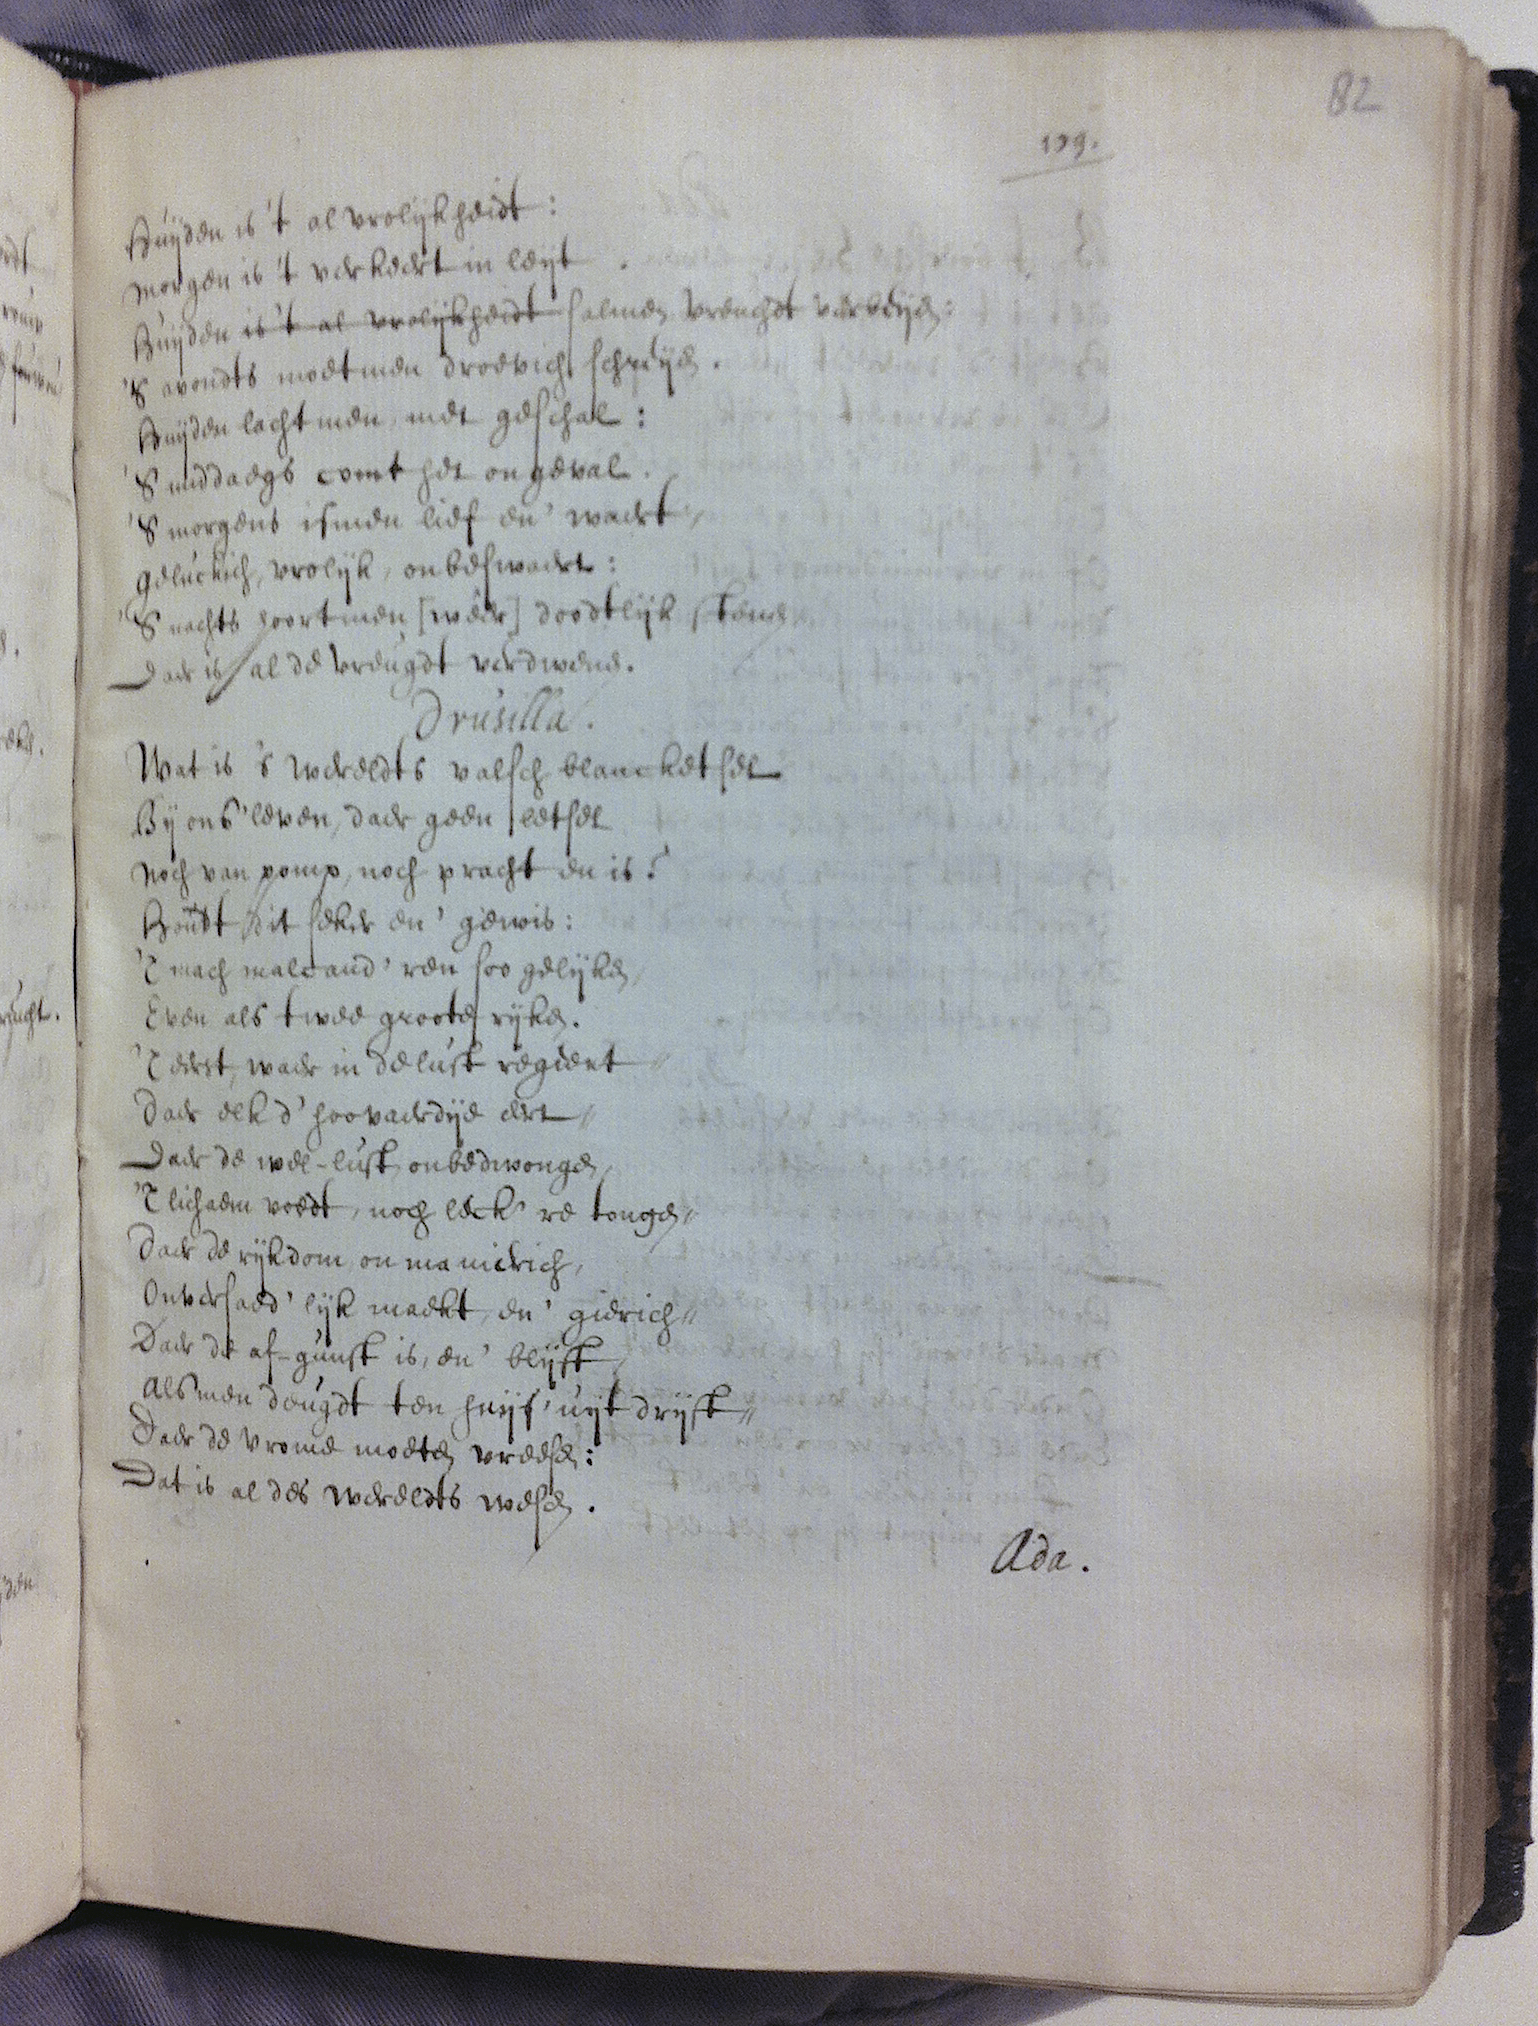 82
179.
Huijden is 't al vrolijkheidt:
Morgen is 't verkeert in leijt.
Huijden is 't al vrolijkheidt salmen vreuchdt verbeijen:
'S avondts moetmen droevich schreijen.
Huijden lachtmen, met geschal:
'S middaegs comt het ongeval.
'S morgens ismen lief en' waert,
Geluckich, vrolijk, onbeswaert:
'S nachts hoortmen [weer] doodtlijk stenen
Daer is al de vreugdt verdwenen.
Drusilla.
Wat is 's werelds valsch blancketsel
Bij ons' leven, daer geen letsel
Noch van pomp, noch pracht en is?
Houdt dit seker en' gewis:
'T mach malcand'ren soo gelijken,
Even als twee groote rijken.
'T eerst, waer in de lust regiert
Daer elk d' hoovaerdije eert
Daer de wel-lust onbedwongen,
'T lichaem voedt, noch leck're tongen
Daer de rijkdom onmanierich,
Onversaed'lijk maekt, en' gierich
Daer de af-gunst is, en' blijft,
Alsmen deugdt ten huijs' uijt drijft
Daer de vrome moeten vreesen:
Dat is al des wereldts wesen.
Ada.